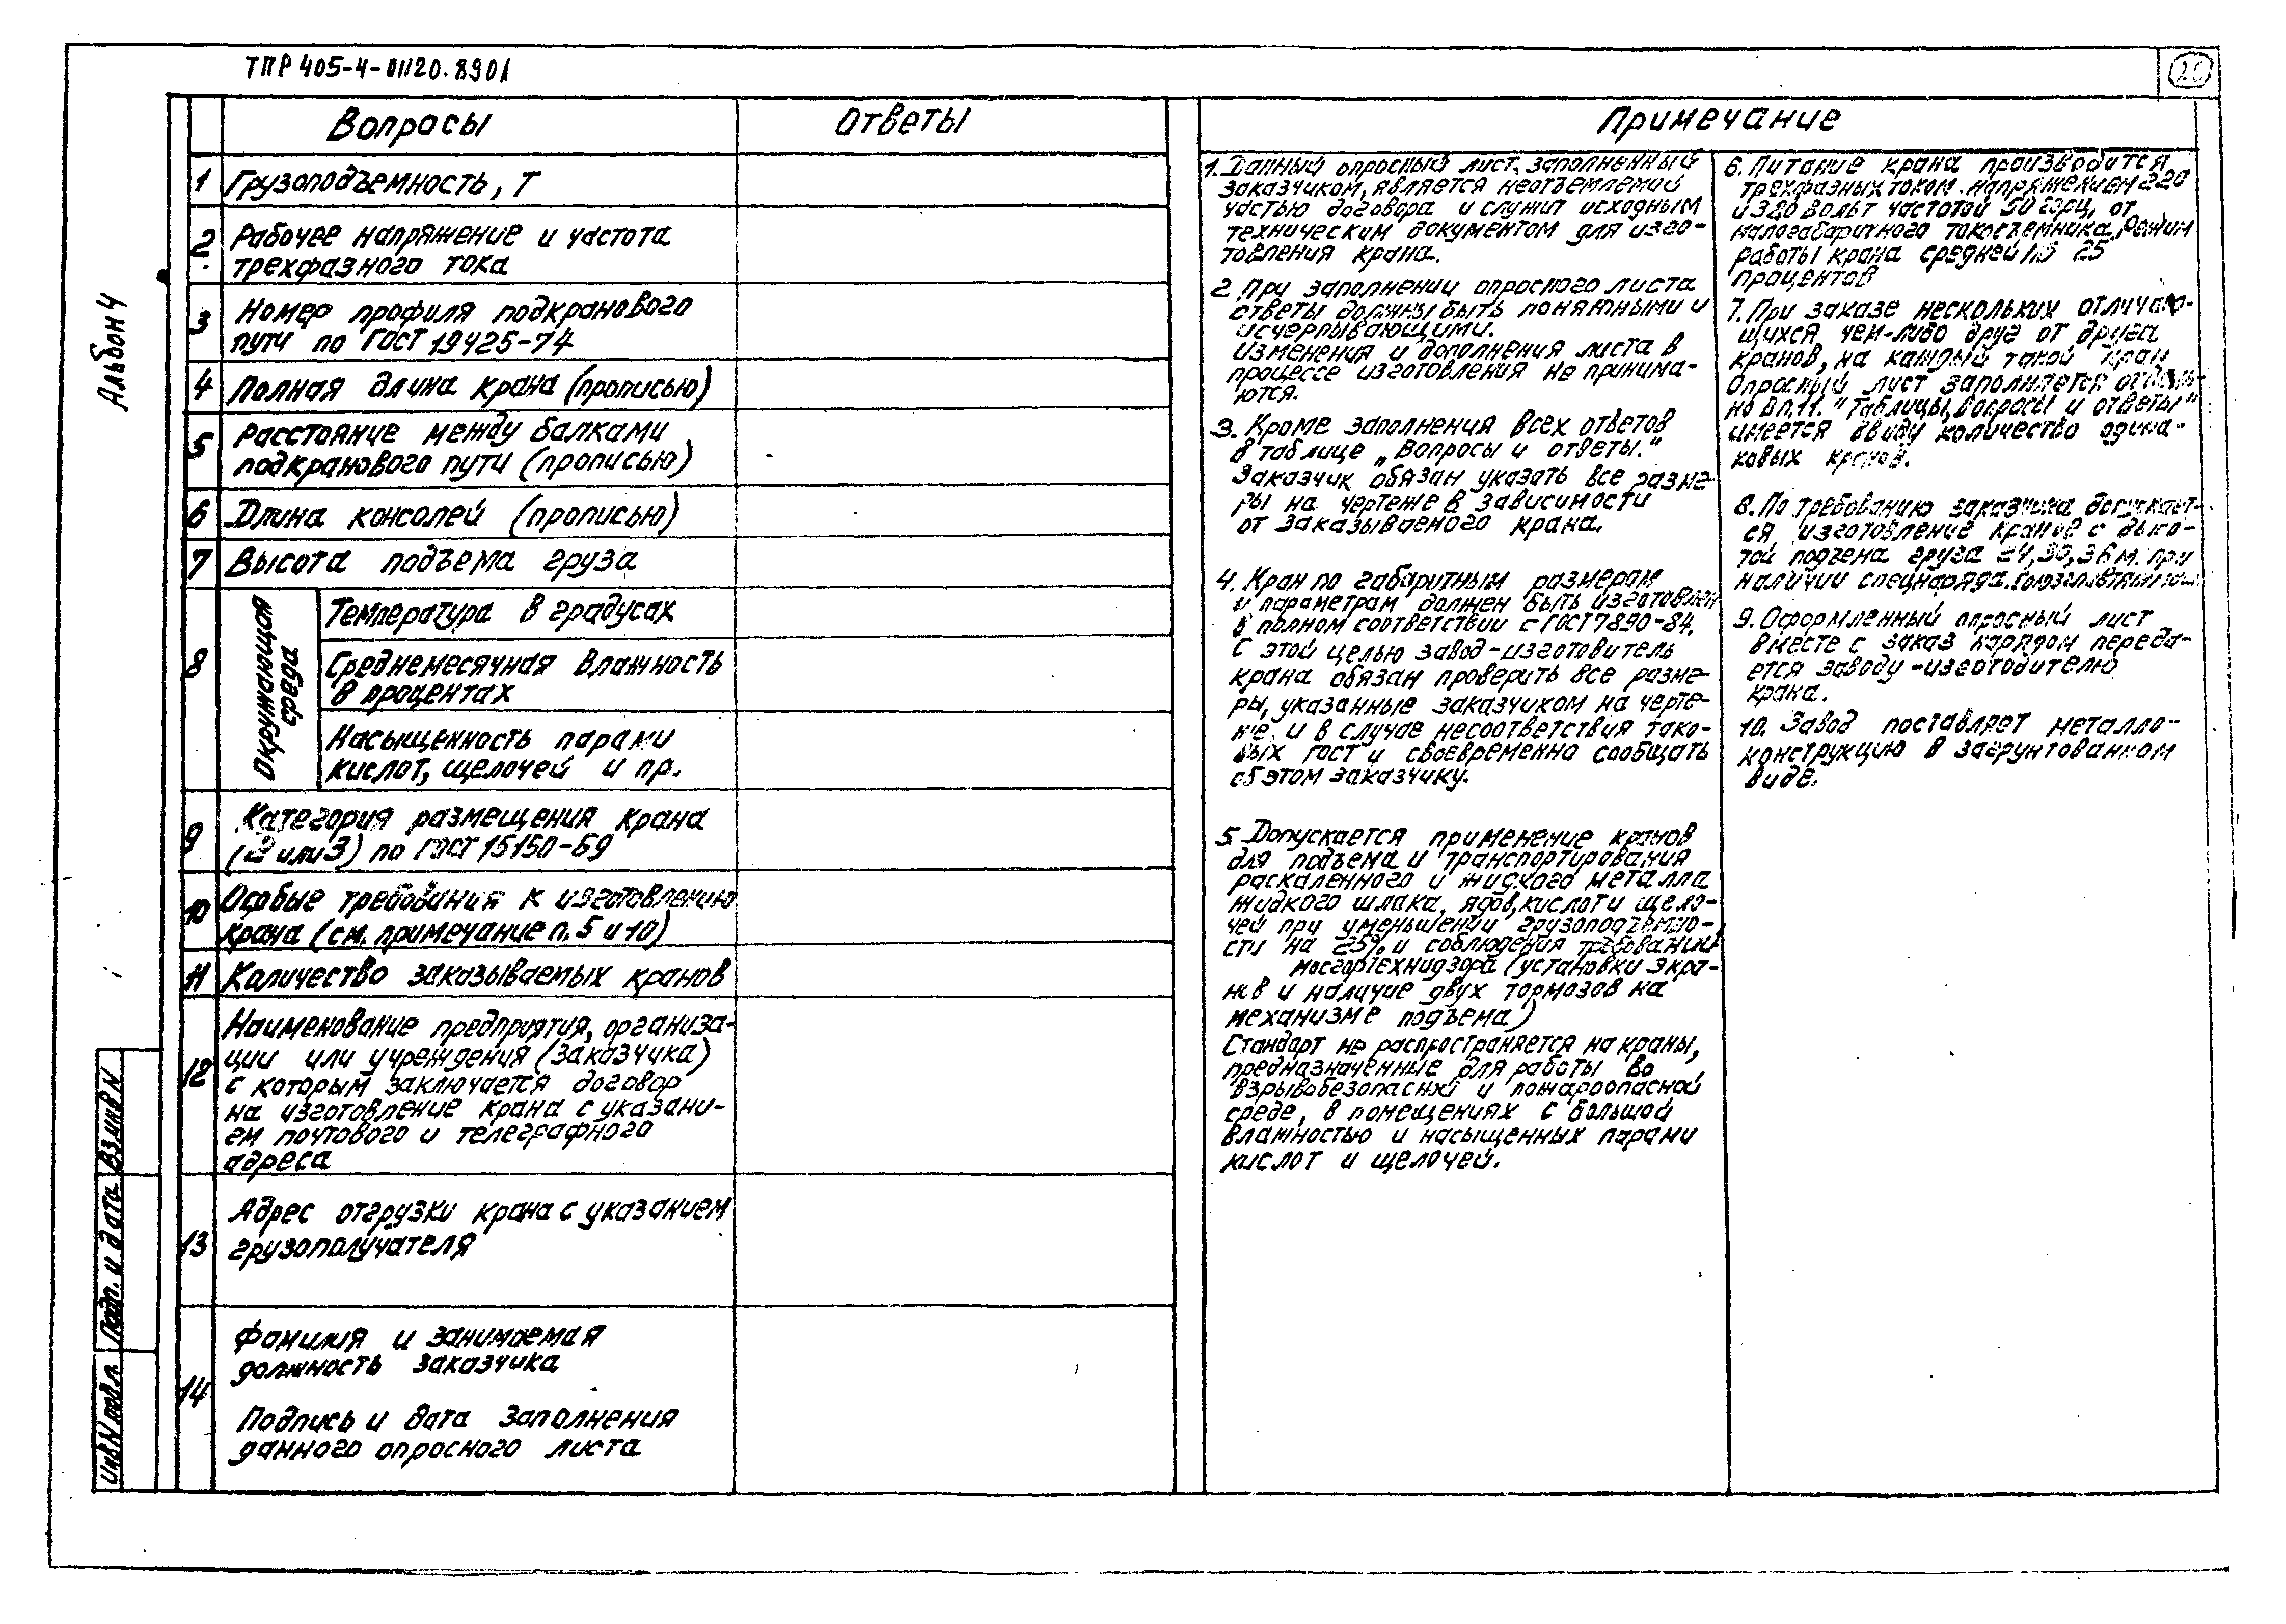 ТПР 405-4-01120.8901
26
Альбом 4
Вопросы
Ответы
1 Грузоподъемность, Т
2 Рабочее напряжение и частота
трехфазного тока
3 Номер профиля подкранового
пути по ГОСТ 19425-74
4 Полная длина крана (прописью)
5 Расстояние между балками
подкранового пути (прописью)
6 Длина консолей (прописью)
7 Высота подъема груза
8 Окружающая
среда
Температура в градусах
Среднемесячная влажность
в процентах
Насыщенность парами
кислот, щелочей и пр.
9 Категория размещения крана
(2 или 3) по ГОСТ 15150-69
10 Особые требования к изготовлению
крана (см. примечание п. 5 и 10)
11 Количество заказываемых кранов
12 Наименование предприятия, организа-
ции или учреждения (заказчика)
с которым заключается договор
на изготовление крана с указани-
ем почтового и телеграфного
адреса
13 Адрес отгрузки крана с указанием
грузополучателя
14 Фамилия и занимаемая
должность заказчика
Подпись и дата заполнения
данного опросного листа
Примечание
1. Данный опросный лист, заполненный
заказчиком, является неотъемлемой
частью договора и служит исходным
техническим документом для изго-
товления крана.
2. При заполнении опросного листа
ответы должны быть понятными и
исчерпывающими.
Изменения и дополнения листа в
процессе изготовления не принима-
ются.
3. Кроме заполнения всех ответов
в таблице „Вопросы и ответы."
Заказчик обязан указать все разме-
ры на чертеже в зависимости
от заказываемого крана.
4. Кран по габаритным размерам
и параметрам должен быть изготовлен
в полном соответствии с ГОСТ 7890-84.
С этой целью завод-изготовитель
крана обязан проверить все разме-
ры, указанные заказчиком на черте-
же, и в случае несоответствия тако-
вых ГОСТ и своевременно сообщать
об этом заказчику.
5. Допускается применение кранов
для подъема и транспортирования
раскаленного и жидкого металла
жидкого шлака, ядов, кислот и щело-
чей при уменьшении грузоподъемно-
сти на 25% и соблюдения требований
мосгортехнидзора (установки экра-
нов и наличие двух тормозов на
механизме подъема)
Стандарт не распространяется на краны,
предназначенные для работы во
взрывобезопасной и пожароопасной
среде, в помещениях с большой
влажностью и насыщенных парами
кислот и щелочей.
6. Питание крана производится
трехфазных током. напряжением 220
и 380 вольт частотой 50 герц, от
малогабаритного токосъемника, Режим
работы крана средней ПВ 25
процентов
7. При заказе нескольких отличаю-
щихся чем-либо друг от друга
кранов, на каждый такой кран
Опросный лист заполняется отдель-
но в п. 11. "Таблицы, вопросы и ответы"
имеется ввиду количество одина-
ковых кранов.
8. По требованию заказчика допускает-
ся изготовление кранов с высо-
той подъема груза 24, 30, 36 м. при
наличии спецнаряда.
9. Оформленный опросный лист
вместе с заказ нарядом переда-
ется заводу-изготовителю
крана.
10. Завод поставляет металло-
конструкцию в загрунтованном
виде.
Инв N подл. Подп. и дата Вз. инв N